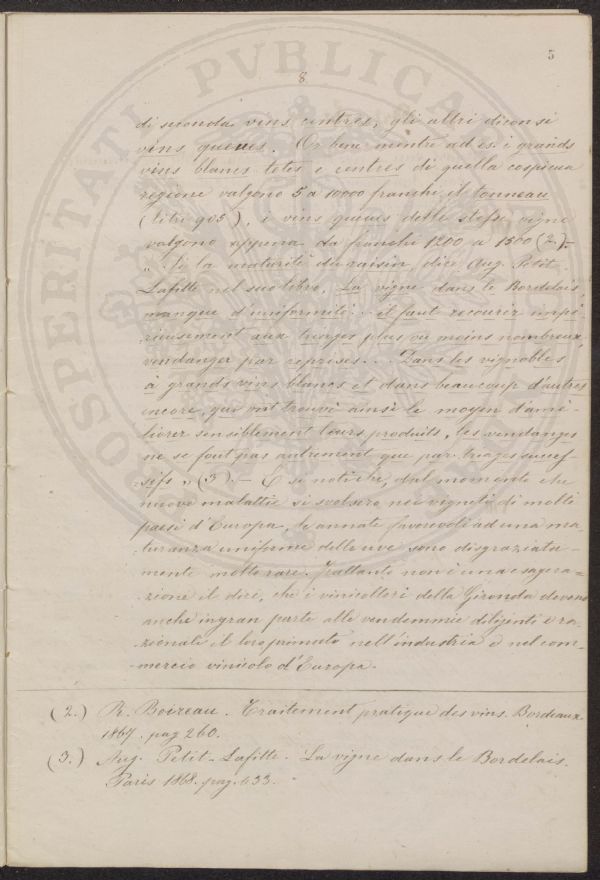 5
8
di seconda vins centres, gli altri diconsi
vins queues. Or bene mentre ad es. i grands
vins blancs têtes e centres di quella cospicua
regione valgono 5 a 10000 franchi il tonneau
(litri 905), i vins queues delle stesse vigne
valgono appena da franchi 1200 a 1500 (2).-
„ Si la maturité du raisin, dice Aug. Petit-
Lafitte nel suo libro, La vigne dans le Bordelais
manque d'uniformité.. il faut recourir impé-
rieusement aux triages plus ou moins nombreux,
vendanger par reprises... Dans les vignobles
à grands vins blancs et dans beaucoup d'autres
encore, qui ont trouvé ainsi le moyen d'amé-
liorer sensiblement leurs produits, les vendanges
ne se font pas autrement que par triages succes-
sifs „ (3).- E si noti che, dal momento che
nuove malattie si svolsero nei vigneti di molti
paesi d'Europa, le annate favorevoli ad una ma-
turanza uniforme delle uve sono disgraziata-
mente molto rare. Frattanto non è una esagera=
zione il dire, che i vinicoltori della Gironda devono
anche in gran parte alle vendemmie diligenti e ra-
zionali il loro primato nell'industria e nel com-
mercio vinicolo d'Europa.
(2.) R. Boireau. Traitement pratique des vins. Bordeaux
1867. pag 260.
(3.) Aug. Petit-Lafitte. La vigne dans le Bordelais.
Paris 1868. pag. 433.
PROSPERITATI PVBLICAE